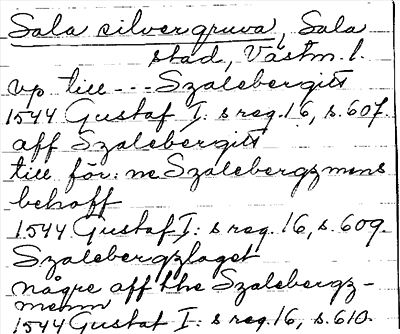 Sala silvergruva, Sala
stad, Västm. l.
up till --- Szalebergitt
1544 Gustaf I:s reg. 16, s. 607.
aff Szalebergitt
till för:ne Szalebergzmens
behoff
1544 Gustaf I:s reg. 16, s. 609.
Szalebergzlaget
någre aff the Szalebergz-
menn
1544 Gustaf I:s reg. 16, s. 610.